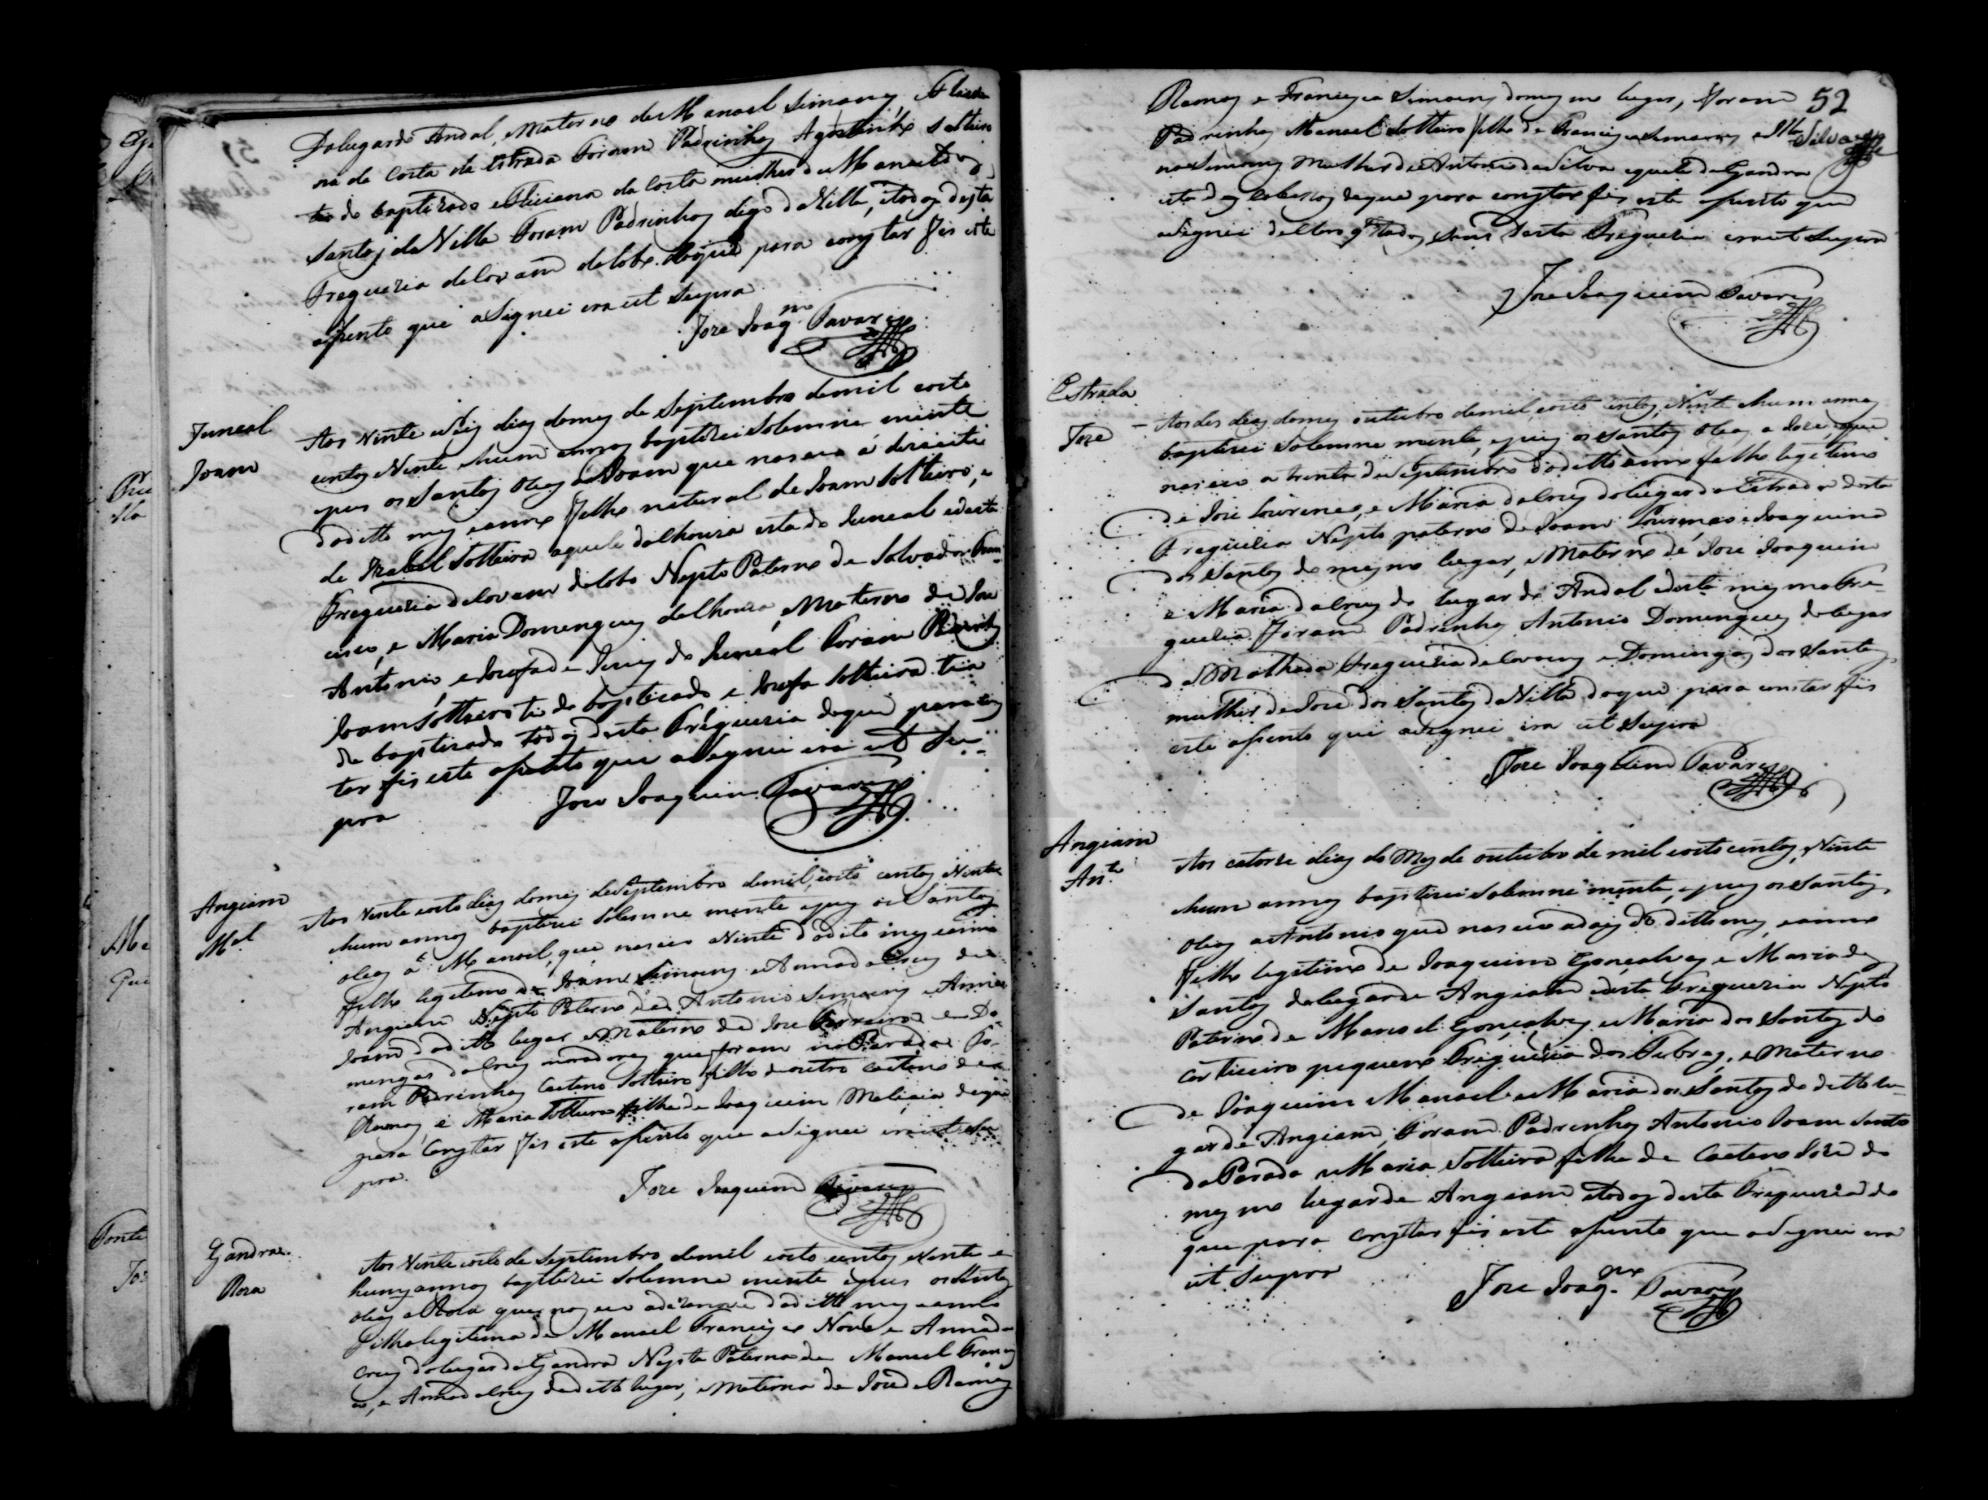 Dolugar do Andal, Materno de Manoel Simoens,
na da Costa da Estrada Foram Padrinhos Agostinho Solteiro
tio do baptizado e Luciana da Costa mulher de Manoel dos
Santos da Villa Foram Padrinhos digo da Villa, e todos desta
Freguezia de Lovam do lobo. doque para constar fis este
asento que asignei era ut supra
Joze Joaqm Tavares
Juncal
Joam
Aos Vinte e seis dias do mes de Septembro de mil oito
centos Vinte e hum annos baptizei Solemne mente
e pus os Santos Oleos a Joam que nasceo a dezasete
do ditto mes e anno Filho natural de Joam Solteiro, e
de Izabel Solteira aquele dalhoura esta do Juncal e desta
Freguezia de Lovam do lobo Nepto Paterno de Salvador Fran-
cisco, e Maria Domingues dalhoura, e Materno de Joze
Antonio e Jozefa de Jezus do Juncal Foram Padrinhos
Joam Solteiro tio do baptizado e Jozefa Solteira tia
do baptizado todos desta Freguezia doque para cons
tar fis este asento que asignei era ut Su-
pra
Joze Joaquim Tavares
Angiam
Mel
Aos Vinte e oito dias do mes de Septembro de mil, oito centos Vinte e
hum annos baptizei Solemne mente e pus os Santos
oleos a Manoel, que nasceo a Vinte do dito mes e anno
filho legitimo de Joam Simoens e Anna da Cruz de
Angiam Nepto Paterno de Antonio Simoens e Anna
Joam do ditto lugar e Materno de Joze Ferreira e Do-
mingas da Cruz moradores que foram na Parada Fo-
ram Padrinhos Caetano Solteiro filho de outro Caetano de
Ramos, e Maria Solteira filha de Joaquim Malicia doque
para Constar fis este asento que asignei era ut su
pra.
Joze Joaquim Tavares
Gandra.
Roza
Aos Vinte e oito de Septembro de mil oito centos e Vinte e
hum annos baptizei Solemne mente e pus os Santos
oleos a Roza que nasceo a dezanove do ditto mes e anno
Filha legitima de Manoel Francisco Novo e Anna da
Cruz do lugar da Gandra Nepta Paterna de Manoel Francis
co, e Anna da Cruz do ditto lugar, e Materna de Joze de Ramos
52
Silva
Ramos e Francisca Simoens do mesmo lugar, Foram
Padrinhos Manoel Solteiro filho de Francisco Simoens
na Simoens mulher de Antonio da Silva aquele da Gandra
esta dos Cabesos doque para constar fis este asento que
asignei declaro q Todos sam desta Freguezia era ut supra
Joze Joaquim Tavares
Estrada
Joze
Aos des dias do mes outubro de mil, oito centos, Vinte e hum annos
baptizei Solemne mente, e pus os Santos Oleos a Joze, que
nasceo a trinta de Septembro do ditto anno filho legitimo
de Joze Lourenço, e Maria da Cruz do lugar da Estrada desta
Freguezia Nepto paterno de Joam Lourenço e Joaquina
dos Santos do mesmo lugar, e Materno de Joze Joaquim
e Maria da Cruz do lugar do Andal desta mesma Fre-
guezia Foram Padrinhos Antonio Domingues do lugar
da Malhada Freguezia de Covoens e Domingas dos Santos
mulher de Joze dos Santos da Villa doque para constar fis
este asento que asignei era ut supra
Joze Joaquim Tavares
Angiam
Anto
Aos catorze dias do Mes de outubro de mil oito centos, Vinte
e hum annos baptizei Solemne mente, e pus os Santos,
oleos a Antonio que nasceo a dois do ditto mes, e anno
filho legitimo de Joaquim Gonçalves e Maria dos
Santos do lugar de Angiam desta Freguezia Nepto
Paterno de Manoel Gonçalves e Maria dos Santos do
corticeiro pequeno Freguezia dos Febres, e Materno
de Joaquim Manoel e Maria dos Santos do ditto lu-
gar de Angiam, Foram Padrinhos Antonio Joam Santo
da Parada e Maria Solteira filha de Caetano Joze do
mesmo lugar de Angiam e todos desta Freguezia do
que para constar fis este asento que asignei era
ut supra
Joze Joaqm Tavares